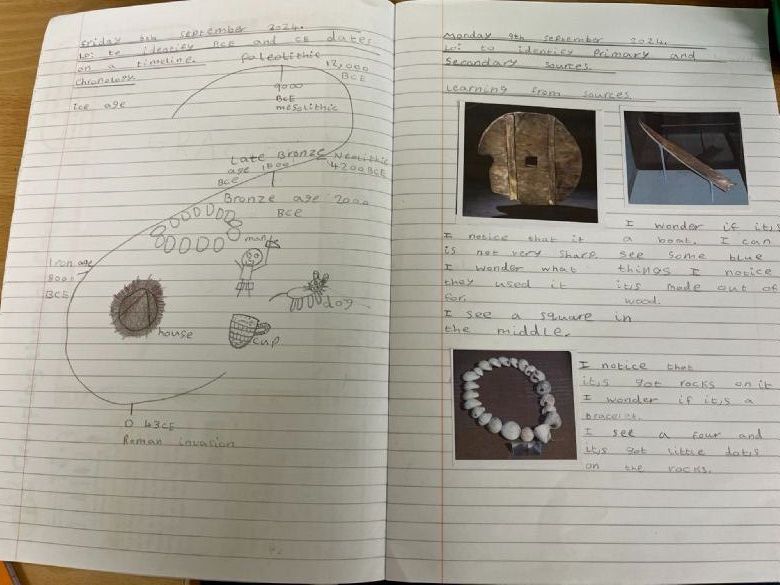 Friday 6th September 2024.
LO: to identify BCE and CE dates
on a timeline.
Chronology
Paleolithic
12,000
BCE
ice age
9000
BCE
mesolithic
Late Bronze
age 1500
BCE
Neolithic
4200BCE
Bronze age 2000
BCE
man
Iron age
8000
BCE
dog
house
cup
0 43CE
Roman invasion
Monday 9th September 2024.
LO: to identify Primary and
Secondary sources.
Learning from sources
I notice that it
is not very sharp.
I wonder what
they used it
for.
I see a square in
the middle.
I wonder if it,s
a boat. I can
see some blue
things I notice
it,s made out of
wood.
I notice that
it,s got rocks on it
I wonder if it,s a
bracelet.
I see a four and
it,s got little dots
on the rocks.